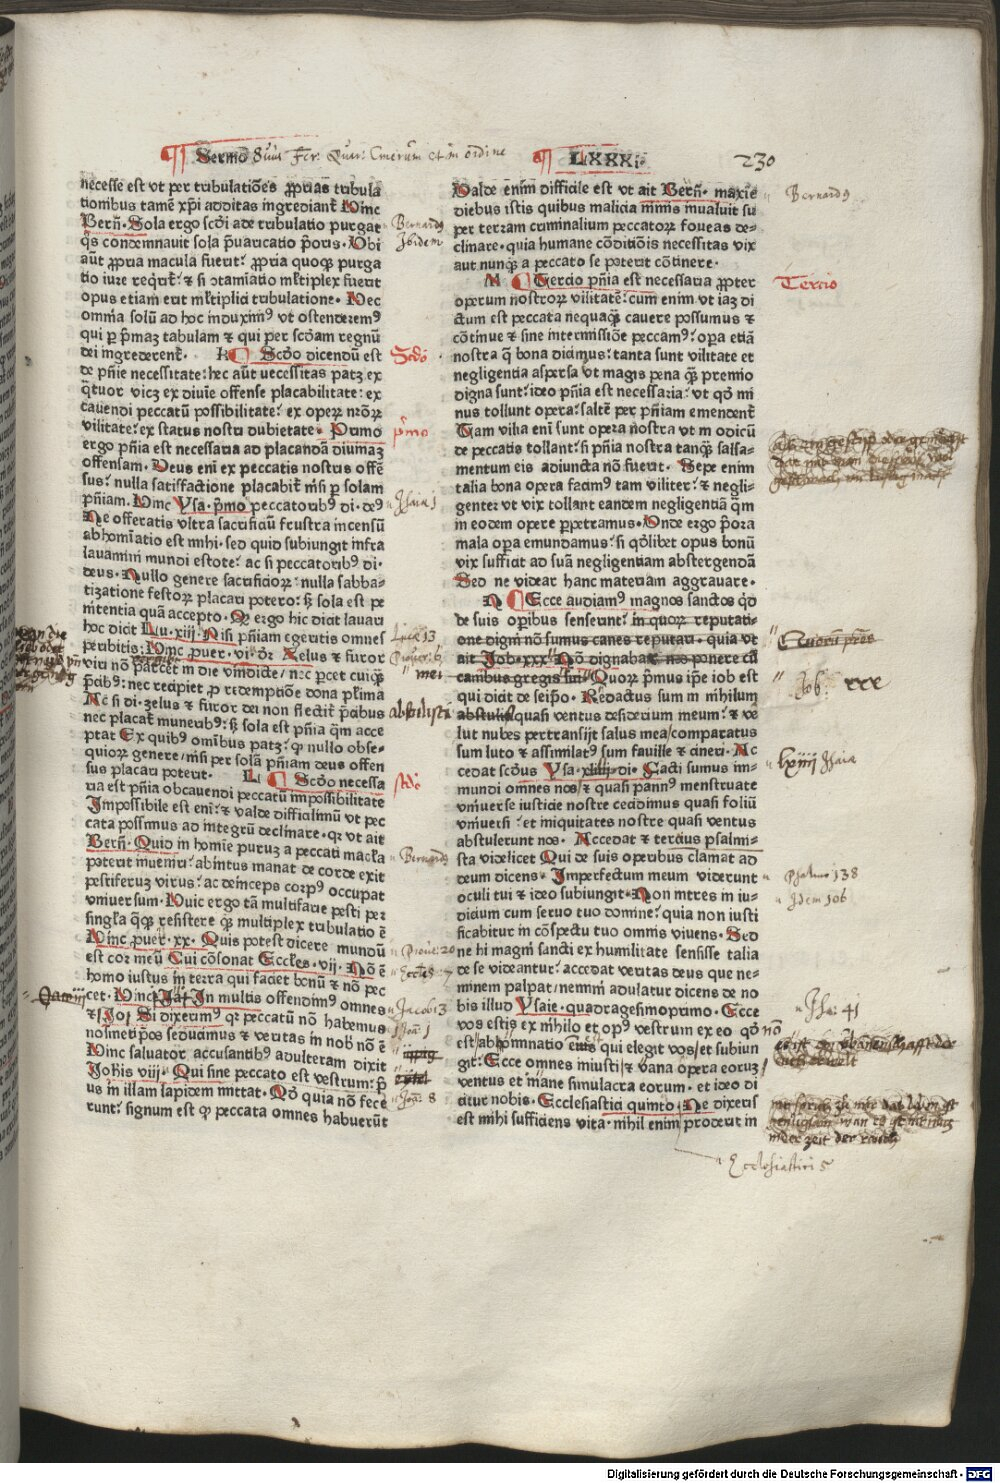 Sermo LXXXi. 230
necesse est vt per tribulatiões ꝓprias tribula
tionibus tamē xp̄i additas ingrediant᷑. Hinc
Berñ. Sola ergo scd̓i ade tribulatio purgat
q̄s condemnauit sola p̄uaricatio p̄oris. Ubi
aūt ꝓpria macula fuerit: ꝓpria quoqꝫ purga
tio iure reqrit᷑: ⁊ si ɔtamīatio mĺtiplex fuerit
opus etiam erit mĺtiplici tribulatione. Nec
omnia solū ad hoc induximꝰ vt ostenderemꝰ
qui per p̄mā tabulam ⁊ qui per scd̓am regnū
dei ingrederent᷑. K Scd̓o dicendū est
de pñie necessitate: hec aūt necessitas patꝫ ex
q̄tuor vicꝫ ex diuine offense placabilitate: ex
cauendi peccatū possibilitate: ex operꝝ nr̄oꝝ
vilitate: ex status nostri dubietate. Primo
ergo pñia est necessaria ad placandā diuinaꝫ
offensam. Deus eni ex peccatis nostris offē
sus: nulla satisfactione placabit᷑ nisi per solam
pñiam. Hinc Ysa. p̄mo peccatoribꝰ di. deꝰ
Ne offeratis vltra sacrificiū frustra incensū
abhomīatio est mihi. sed quid subiungit infra
lauamini mundi estote: ac si peccatoribꝰ di.
deus. Nullo genere sacrificioꝝ: nulla sabba-
tizatione festoꝝ placari potero: sꝫ sola est pe
nitentia quā accepto. Qꝛ ergo hic dicit lauari
hoc dicit Lu. xiij. Nisi pñiam egeritis omnes
peribitis: Hinc prouer. vi. dr̄. Zelus ⁊ furor
viri nō parcet in die vindicte: nec
p̄cibꝰ: nec recipiet ꝓ redemptiōe dona pĺima
Ac si di. zelus ⁊ furor dei non flectit᷑ p̄cibus
nec placat᷑ muneribꝰ: sꝫ sola est pñia qm̄ acce
ptat Ex quibꝰ omībus patꝫ: qꝫ nullo obse-
quioꝝ genere: nisi per solā pñiam deus offen
sus placari poterit. L Scd̓o necessa
ria est pñia ob cauendi peccatū impossibilitate
Impossibile est eni: ⁊ valde difficilimū vt pec
cata possimus ad integrū declinare. qꝛ vt ait
Berñ. Quid in homie purꝫ a peccati macĺa
poterit inueniri: ab intus manat de corde exit
pestiferuꝫ virus: ac deinceps corpꝰ occupat
vniuersum. Huic ergo tā multifarie pesti per
singĺa q̄qꝫ resistere q̄ꝫ multiplex tribulatio ē
Hinc prouer. xx. Quis potest dicere mundū
est cor meū Cui cōsonat Eccles. vij. Nō ē
homo iustus in terra qui faciet bonū ⁊ nō pec
cet. Hinc Jac. In multis offendimꝰ omnes
⁊ Joh. Si dixerimꝰ qꝛ peccatū nō habemus
nosmetip̄os seducimus ⁊ veritas in nob̄ nō ē
Hinc saluator accusantibꝰ adulteram dixit
Joh̄is viij. Qui sine peccato est vestrum: p̄
us in illam lapidem mittat. Qd̓ quia nō fece
runt: signum est qꝫ peccata omnes habuerūt
Valde enim difficile est vt ait Berñ. maxie
diebus istis quibus malicia nimis inualuit su
per terram criminalium peccatoꝝ foueas de-
clinare. quia humane cōditiōis necessitas vix
aut nunqꝫ a peccato se poterit cōtinere.
M Tercio pñia est necessaria ꝓpter
operum nostroꝝ vilitatē: cum enim vt iaꝫ di
ctum est peccata nequaqꝫ cauere possumus ⁊
cōtinue ⁊ sine intermissiōe peccamꝰ: opa etiā
nostra q̄ bona dicimus: tanta sunt vilitate et
negligentia aspersa vt magis pena qꝫ premio
digna sunt: ideo pñia est necessaria: vt qd̓ mi
nus tollunt opera: saltē per pñiam emendent᷑
Tam vilia eni sunt opera nostra vt modicū
de peccatis tollant: si pñia nostra tanqꝫ salsa-
mentum eis adiuncta nō fuerit. Sepe enim
talia bona opera facimꝰ tam viliter: ⁊ negli-
genter vt vix tollant eandem negligentiā qm̄
in eodem opere ꝑpetramus. Unde ergo p̄ora
mala opa emundamus: si qd̓libet opus bonū
vix sufficit ad suā negligentiam abstergendā
Sed ne videar hanc materiam aggrauare.
N Ecce audiamꝰ magnos sanctos qd̓
de suis opibus senserunt: in quoꝝ reputati-
one digni nō sumus canes reputari. quia vt
ait Job. xxx. Nō dignabar nos ponere cū
canibus gregis sui. Quoꝝ p̄mus ip̄e iob est
qui dicit de seip̄o. Redactus sum in nihilum
abstulisti quasi ventus desiderium meum: ⁊ ve
lut nubes pertransijt salus mea/comparatus
sum luto ⁊ assimilatꝰ sum fauille ⁊ cineri. Ac
cedat scd̓us Ysa. di. Facti sumus im-
mundi omnes nos/⁊ quasi pannꝰ menstruate
vniuerse iusticie nostre cecidimus quasi foliū
vniuersi: et iniquitates nostre quasi ventus
abstulerunt nos. Accedat ⁊ tercius psalmi-
sta videlicet Qui de suis operibus clamat ad
deum dicens. Imperfectum meum viderunt
oculi tui ⁊ ideo subiungit. Non intres in iu-
dicium cum seruo tuo domine: quia non iusti
ficabitur in cōspectu tuo omnis viuens. Sed
ne hi magni sancti ex humilitate sensisse talia
de se videantur: accedat veritas deus que ne-
minem palpat/neminī adulatur dicens de no
bis illud Ysaie. quadragesimoprimo. Ecce
vos estis ex nihilo et opꝰ vestrum ex eo qd̓ nō
est/abhominatio qui elegit vos/et subiun
git: Ecce omnes iniusti/⁊ vana opera eoruꝫ/
ventus et inane simulacra eorum. et ideo di
citur nobis. Ecclesiastici quinto. Ne dixeris
est mihi sufficiens vita. nihil enim proderit in
Bernardꝰ
Ibidem
Scd̓o
p̄mo
Isaia 1
Luce 13
mei
abstulisti
scd̓o
Bernardꝰ
Proue: 20
Eccles: 7
Jacobi 3
Joā: 1
Joā: 8
Bernardꝰ
Tercio
Job: xxx
lxiiij Isaia
Psalmo 138
Idem 106
Isa: 41
Ecclesiastici 5
Digitalisierung gefördert durch die Deutsche Forschungsgemeinschaft - DFG